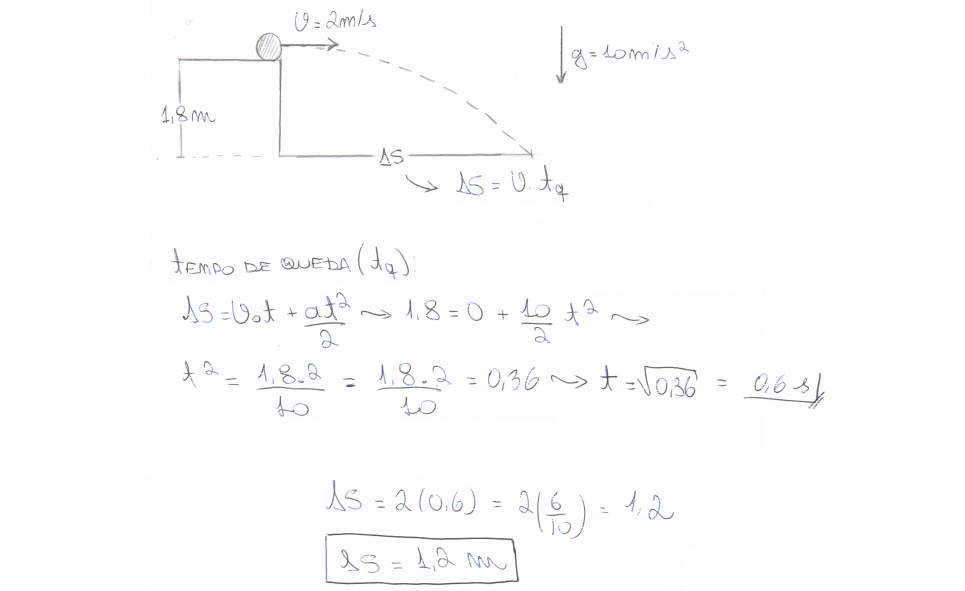 v = 2m/s
g = 10m/s²
1,8m
ΔS
ΔS = v. tq
TEMPO DE QUEDA (tq):
ΔS = v₀t + at²/2 ⤳ 1,8 = 0 + 10/2 t² ⤳
t² = 1,8.2/10 = 1,8.2/10 = 0,36 ⤳ t = √0,36 = 0,6 s
ΔS = 2(0,6) = 2(6/10) = 1,2
ΔS = 1,2 m